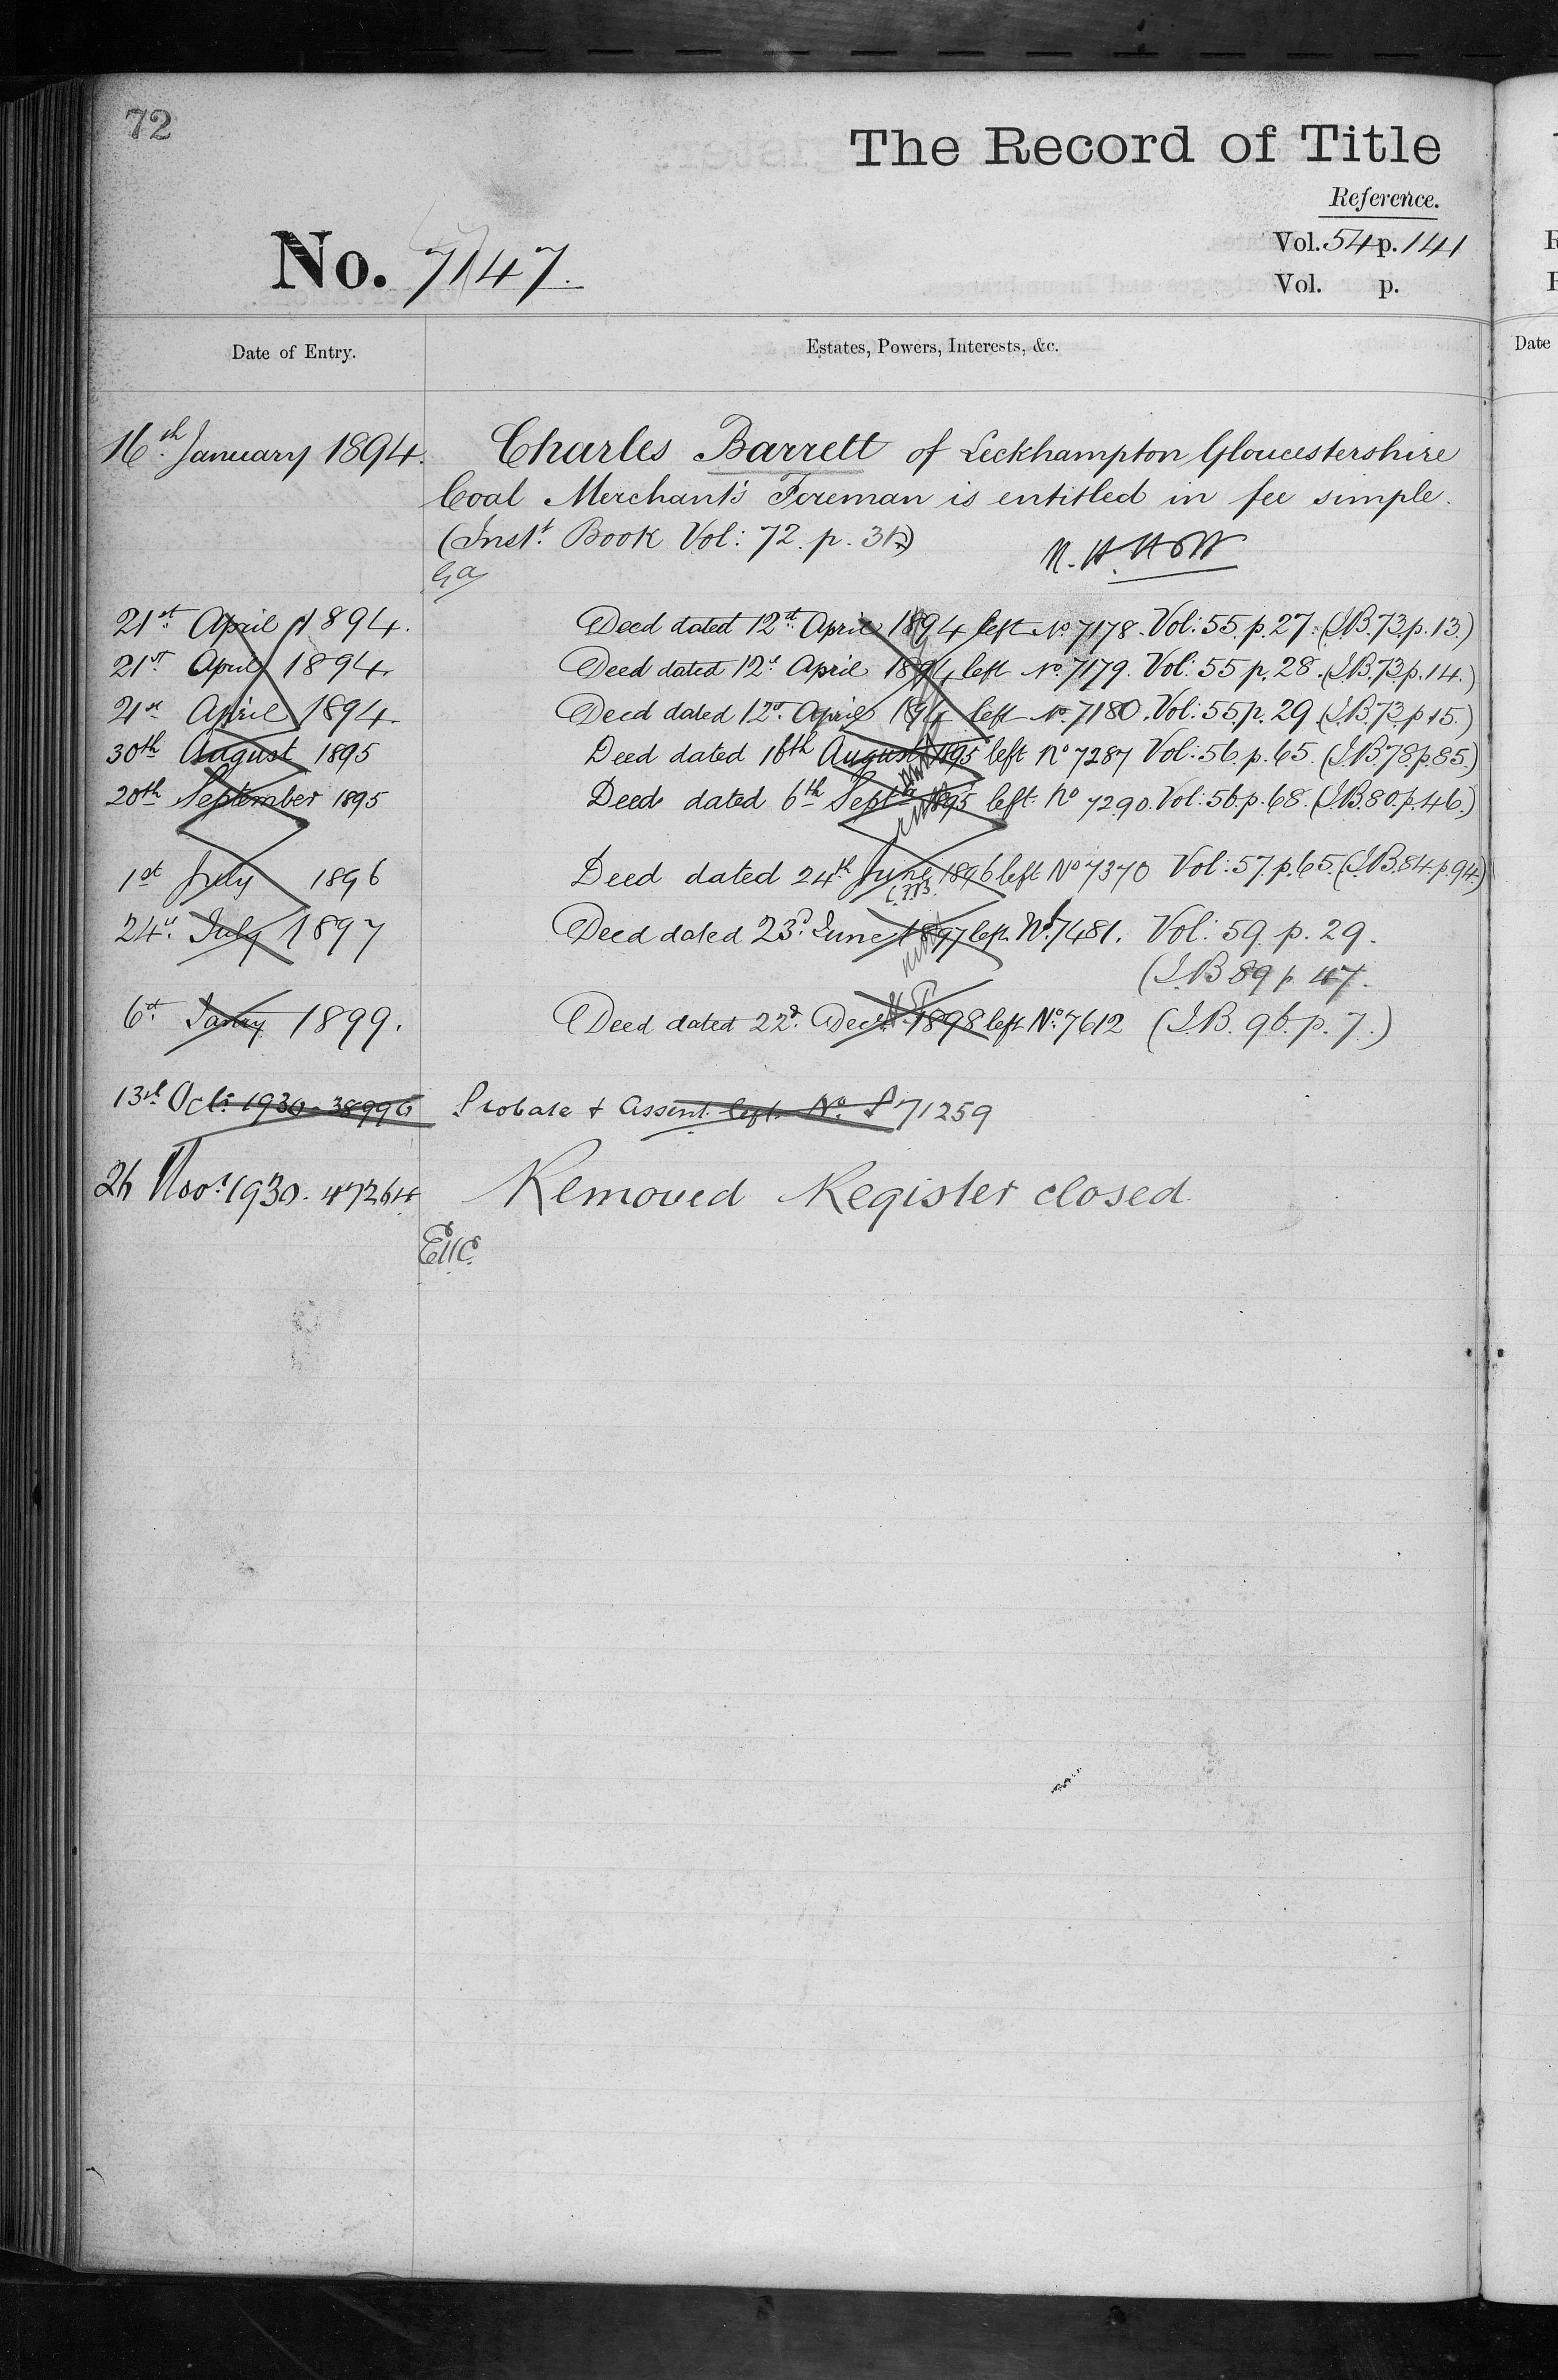 72
The Record of Title
Reference.
No. 7147.
Vol. 54 p. 141
Vol. p.
Date of Entry.
Estates, Powers, Interests, &c.
Date
16th January 1894. Charles Barrett of Leckhampton Gloucestershire
Coal Merchant's Foreman is entitled in fee simple.
(Inst. Book Vol: 72. p. 31.)
21st April 1894. Deed dated 12th April 1894 left No 7178. Vol: 55. p. 27. (I.B. 73 p. 13.)
21st April 1894. Deed dated 12th April 1894 left No 7179. Vol: 55 p. 28. (I.B. 73 p. 14.)
21st April 1894. Deed dated 12th April 1894 left No 7180. Vol: 55 p. 29. (I.B. 73 p 15.)
30th August 1895 Deed dated 16th August 1895 left No 7287 Vol: 56. p. 65. (I.B. 78. p. 85.)
20th September 1895 Deed dated 6th Septr 1895 left No 7290. Vol: 56. p. 68. (I.B. 80. p. 46.)
1st July 1896 Deed dated 24th June 1896 left No 7370 Vol: 57. p. 65. (I.B. 84. p. 94.)
24th July 1897 Deed dated 23d June 1897 left No. 7481. Vol: 59. p. 29.
(I.B 89 p. 47.
6th Janry 1899. Deed dated 22d. Decr 1898 left No. 7612 (I.B. 96. p. 7.)
13th Oct. 1930 - 38996 Probate & Assent left No. P 71259
26 Nov. 1930. 47264 Removed Register closed